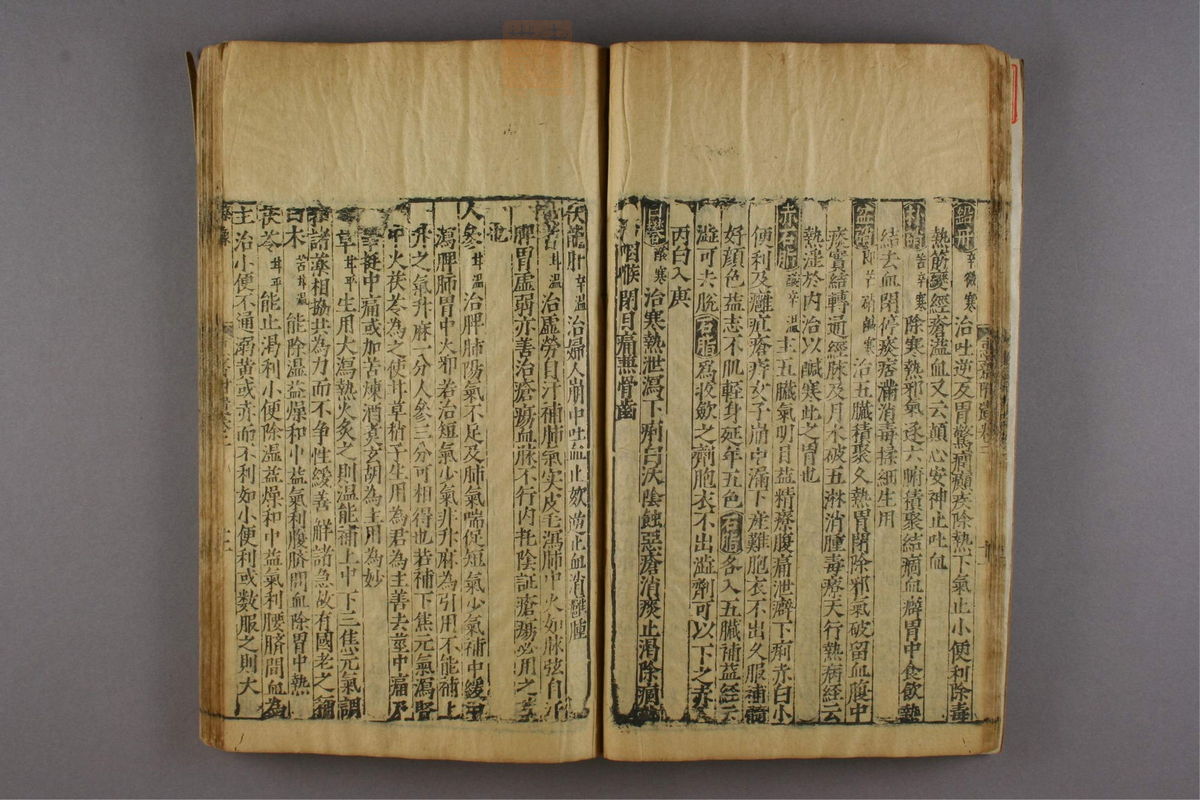 鉛丹辛微寒治吐逆反胃驚癇癲疾除熱下氣止小便利除毒
熱筋攣經瘡溢血又云顛心安神止吐血
朴硝苦辛寒除寒熱邪氣逐六腑積聚結痼血癖胃中食飲熱
結去血閉停痰痞滿消毒揉細生用
盆硝即芒硝鹹寒治五臟積聚久熱胃閉除邪氣破留血腹中
痰實結轉通經脉及月水破五淋消腫毒療天行熱病經云
熱淫於内治以鹹寒此之胃也
赤石脂酸辛温主五臟氣明目益精療腹痛泄癖下痢赤白小
便利及癰疽瘡痔女子崩中漏下產難胞衣不出久服補髓
好顔色益志不肌輕身延年五色石脂各入五臟補益經云
澁可去脱石脂爲收斂之劑胞衣不出澁劑可以下之赤入
丙白入庚
白礬酸寒治寒熱泄瀉下痢白沃陰蝕惡瘡消痰止渴除痼
咽喉閉目痛無骨齒
伏龍肝辛温治婦人崩中吐血止欬逆止血消癰腫
甘温治虛勞自汗補肺氣實皮毛瀉肺中火如脉弦自汗
脾胃虛弱亦善治瘡瘍血脉不行内托陰証瘡瘍必用之
也
人參甘温治脾肺陽氣不足及肺氣喘促短氣少氣補中緩中
瀉脾肺胃中火邪若治短氣少氣非升麻為引用不能補上
升之氣升麻一分人參三分可相得也若補下焦元氣瀉腎
中火茯苓為之使甘草梢子生用為君為主善去莖中痛
莖中痛或加苦煉酒煑玄胡為主用為妙
草甘平生用大瀉熱火炙之則温能補上中下三焦元氣調
諸藥相協共為力而不争性緩善觧諸急故有國老之稱
白术苦甘温能除濕益燥和中益氣利腹臍間血除胃中熱
茯苓甘平能止渴利小便除濕益燥和中益氣利腰臍間血為
主治小便不通溺黄或赤而不利如小便利或数服之則大